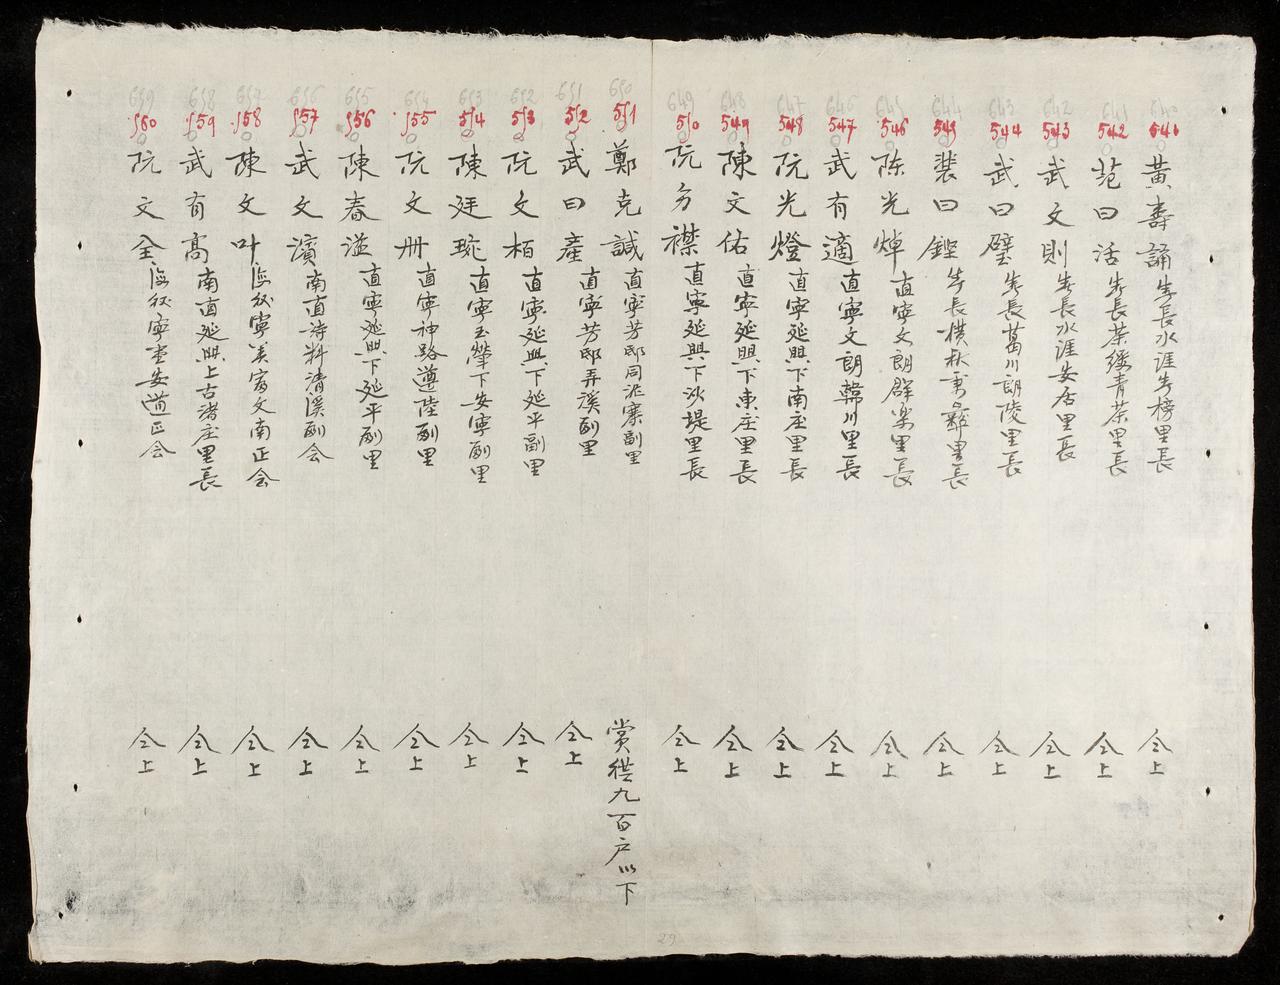 541 黃壽誦 先長水涯先榜里長 仝上
542 范曰活 先長茶縷青茶里長 仝上
543 武文則 先長水涯安居里長 仝上
544 武曰璧 先長葛川朗陵里長 仝上
545 裴曰鏗 先長橫秋里長 仝上
546 陈光焯 直寧文朗群楽里長 仝上
547 武有適 直寧文朗韓川里長 仝上
548 阮光燈 直寧延興下南庄里長 仝上
549 陳文佑 直寧延興下東庄里長 仝上
550 阮方襟 直寧延興下沙堤里長 仝上
551 鄭克誠 直寧芳邸同泥寨副里 賞祿九百户以下
552 武曰產 直寧芳邸弄溪副里 仝上
553 阮文栢 直寧延興下延平副里 仝上
554 陳廷琬 直寧玉輦下安寧副里 仝上
555 阮文册 直寧神路遵陸副里 仝上
556 陳春溢 直寧延興下延平副里 仝上
557 武文濱 南直詩料清溪副会 仝上
558 陳文叶 文南正会 仝上
559 武有高 南直延興上古渚庄里長 仝上
560 阮文全 安道正会 仝上
29